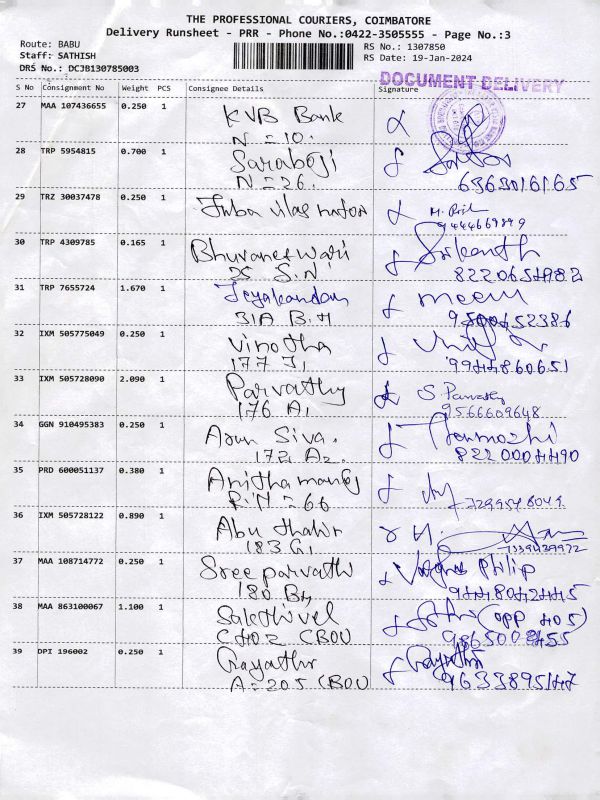 THE PROFESSIONAL COURIERS, COIMBATORE
Delivery Runsheet - PRR - Phone No.:0422-3505555 - Page No.:3
Route: BABU
Staff: SATHISH
DRS No.: DCJB130785003
RS No.: 1307850
RS Date: 19-Jan-2024
DOCUMENT DELIVERY
S No Consignment No Weight PCS Consignee Details Signature
27 MAA 107436655 0.250 1 KVB Bank
N = 10.
28 TRP 5954815 0.700 1 Saraboji
N = 26. 6363016165
29 TRZ 30037478 0.250 1
9444669899
30 TRP 4309785 0.165 1 Bhuvaneswari Srikanth
35 S.N
31 TRP 7655724 1.670 1 Jeyakandan meenu
31A B.H 9500652386
32 IXM 505775049 0.250 1 Vinotha
177 J1 9944860651
33 IXM 505728090 2.090 1 Parvathy S. Parvathy
176 A1 9566609648
34 GGN 910495383 0.250 1 Arun Siva. Thenmozhi
172 A2 8220004490
35 PRD 600051137 0.380 1 Anitha manoj
R.N = 66 7299548049
36 IXM 505728122 0.890 1 Abu thahir
183 G1 7339439972
37 MAA 108714772 0.250 1 Sree parvathi Philip
180 B4 9448042445
38 MAA 863100067 1.100 1 Sakthivel (opp 405)
C402 CBOU
39 DPI 196002 0.250 1 Gayathri Gayathri
A=205 CBOU 9633895147